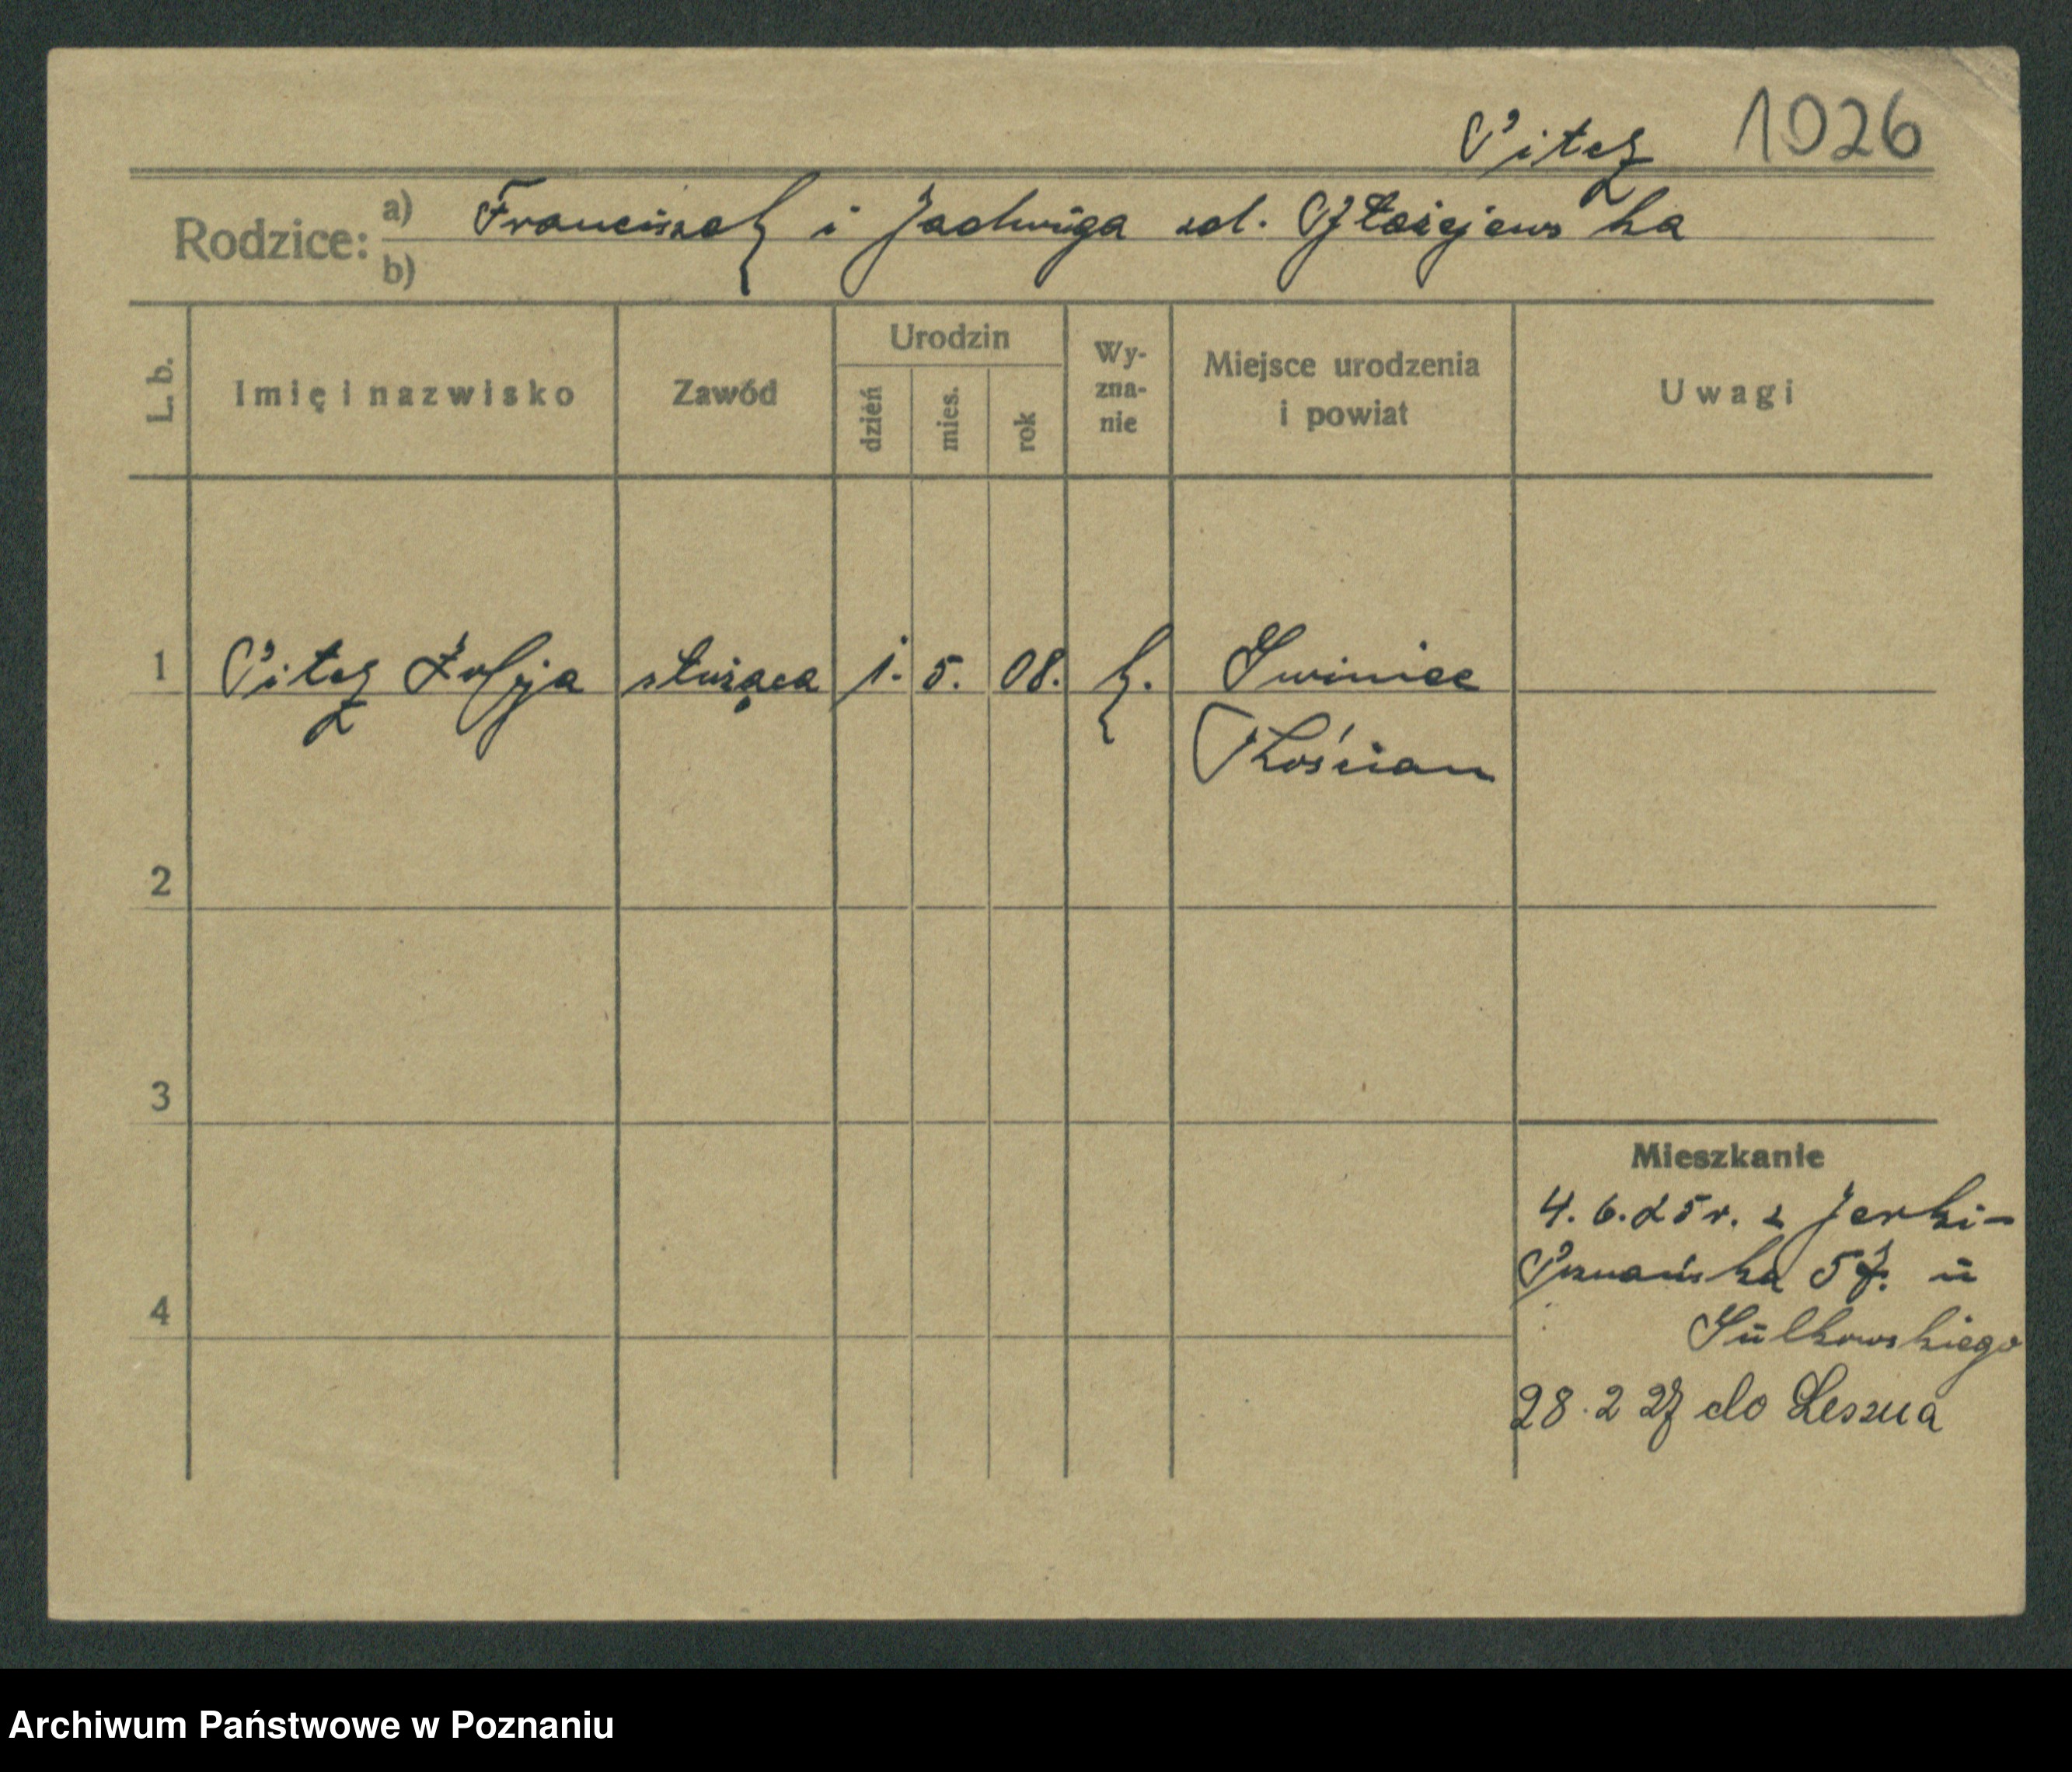 Pitez 1026
Rodzice: a) Franciszek i Jadwiga zd.
b)
L. b. Imię i nazwisko Zawód Urodzin dzień mies. rok Wyznanie Miejsce urodzenia i powiat Uwagi
1 Pitez Zofja służąca 1. 5. 08. k. Świniec
Kościan
2
3
Mieszkanie
4. 6. 25 r. z Jerki-
Poznańska 57. u
4
Sułkowskiego
28. 2 27 do Leszna
Archiwum Państwowe w Poznaniu